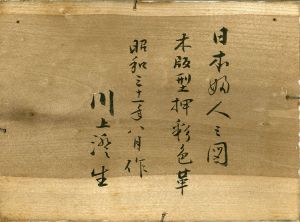 日本婦人之図
木版型押彩色革
昭和三十一年八月作
川上澄生